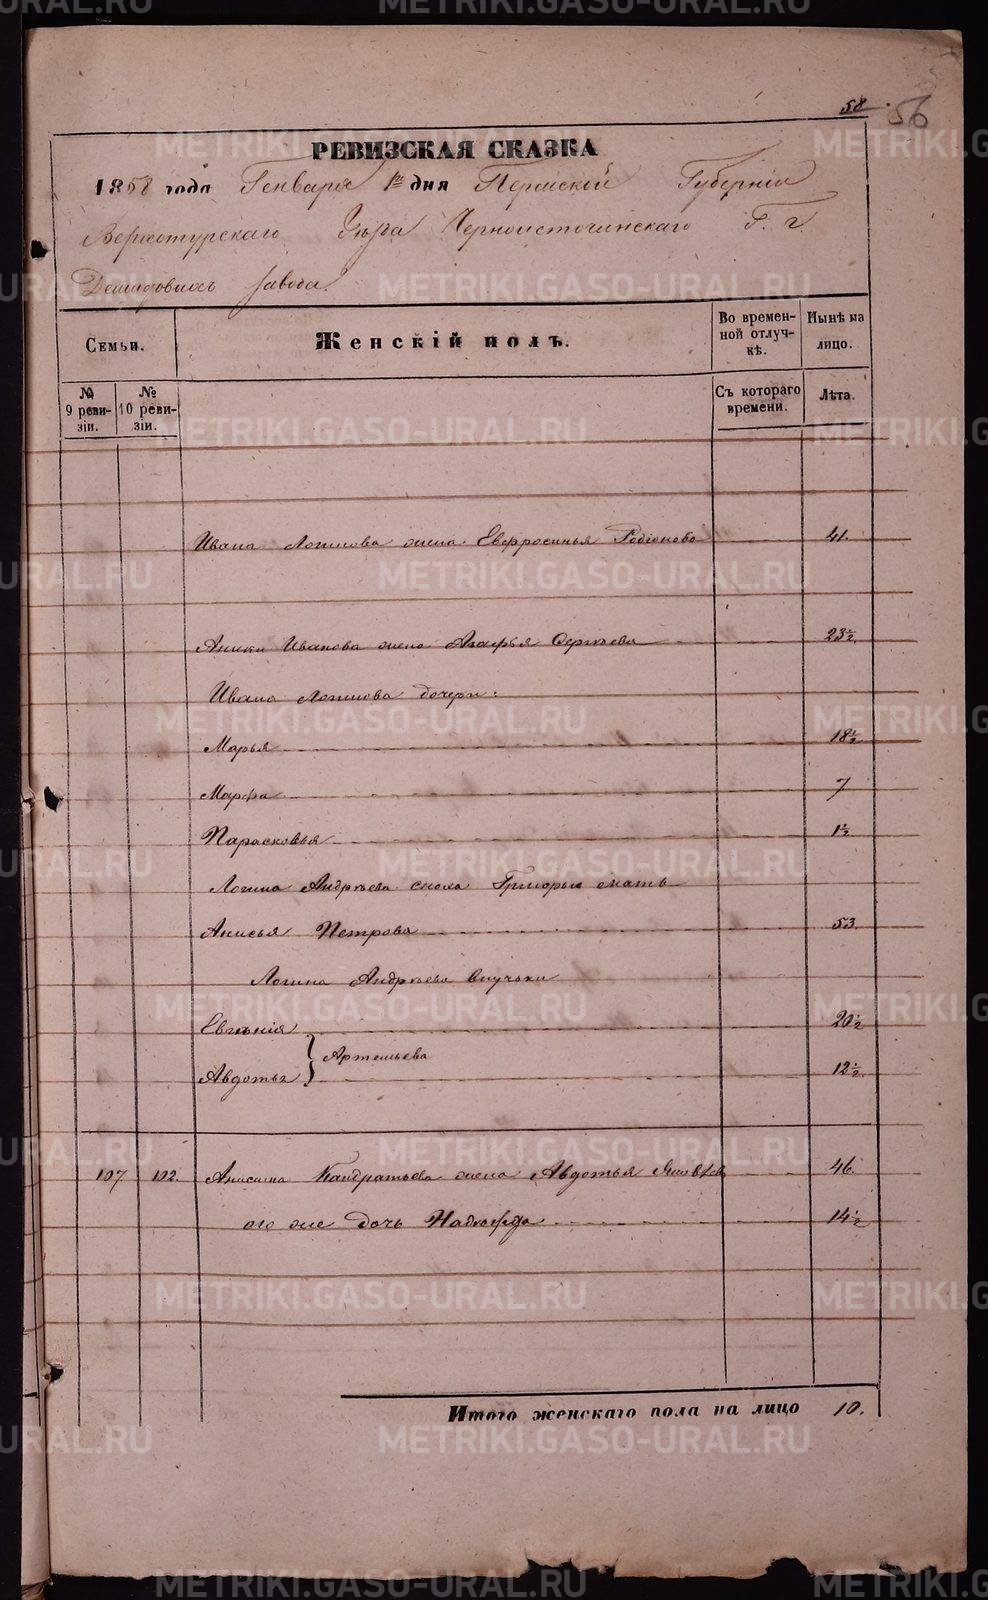 58.
56
РЕВИЗСКАЯ СКАЗКА
1858 года Генваря 1го дня Пермской Губерніи
Верхотурскаго Уезда Черноисточинскаго Г. г.
Демидовыхъ завода.
Семьи.
Женскій полъ.
Во времен-
ной отлуч-
кѣ.
Нынѣ на
лицо.
№
9 реви-
зіи.
№
10 реви-
зіи.
Съ котораго
времени.
Лѣта.
Ивана Логинова жена Евфросинья Родіонова 41.
Аники Иванова жена Агафья Сергѣева 23½
Ивана Логинова дочери:
Марья 18½
Марфа 7
Парасковья 1½
Логина Андрѣева сноха Григорью мать
Анисья Петрова 53.
Логина Андрѣева внучьки
Евгѣнія 20½
} Артемьева
Авдотья 12½
107. 102. Анисима Кандратьева жена Авдотья Яковлева 46.
его же дочь Надѣжда 14½
Итого женскаго пола на лицо 10.
METRIKI.GASO-URAL.RU